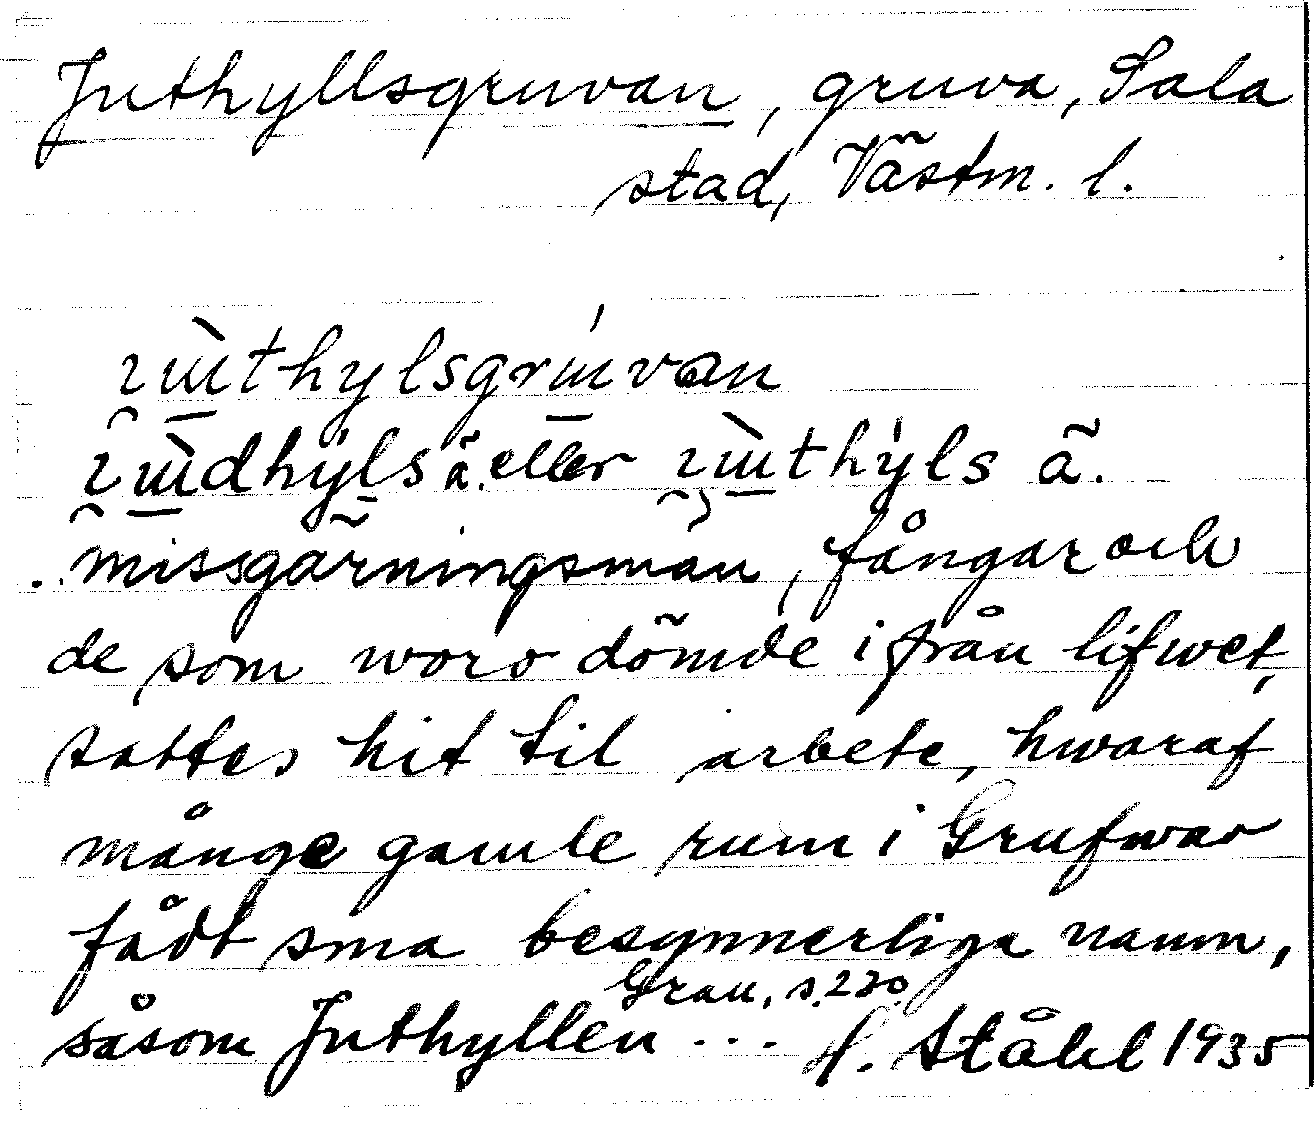 Juthyllsgruvan, gruva, Sala
stad, Västm. l.
missgärningsmän, fångar och
de som woro dömde ifrån lifwet,
sattes hit til arbete, hwaraf
månge gamle rum i Grufwan
fådt sina besynnerliga namn,
såsom Juthyllen ...
Grau, s. 220
H. Ståhl 1935